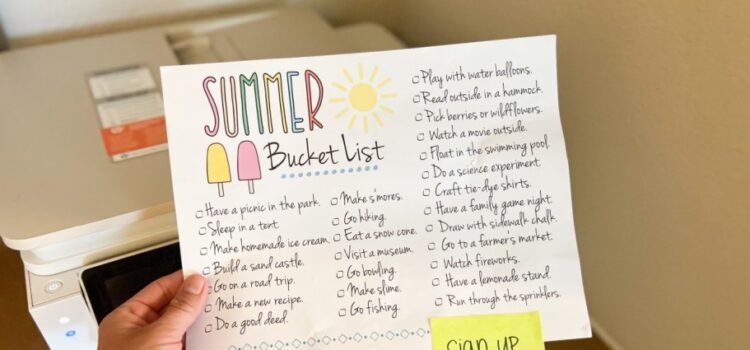 SUMMER
Bucket List
Have a picnic in the park.
Sleep in a tent.
Make homemade ice cream.
Build a sand castle.
Go on a road trip.
Make a new recipe.
Do a good deed.
Make s'mores.
Go hiking.
Eat a snow cone.
Visit a museum.
Go bowling.
Make slime.
Go fishing.
Play with water balloons.
Read outside in a hammock.
Pick berries or wildflowers.
Watch a movie outside.
Float in the swimming pool.
Do a science experiment.
Craft tie-dye shirts.
Have a family game night.
Draw with sidewalk chalk.
Go to a farmer's market.
Watch fireworks.
Have a lemonade stand.
Run through the sprinklers.
sign up